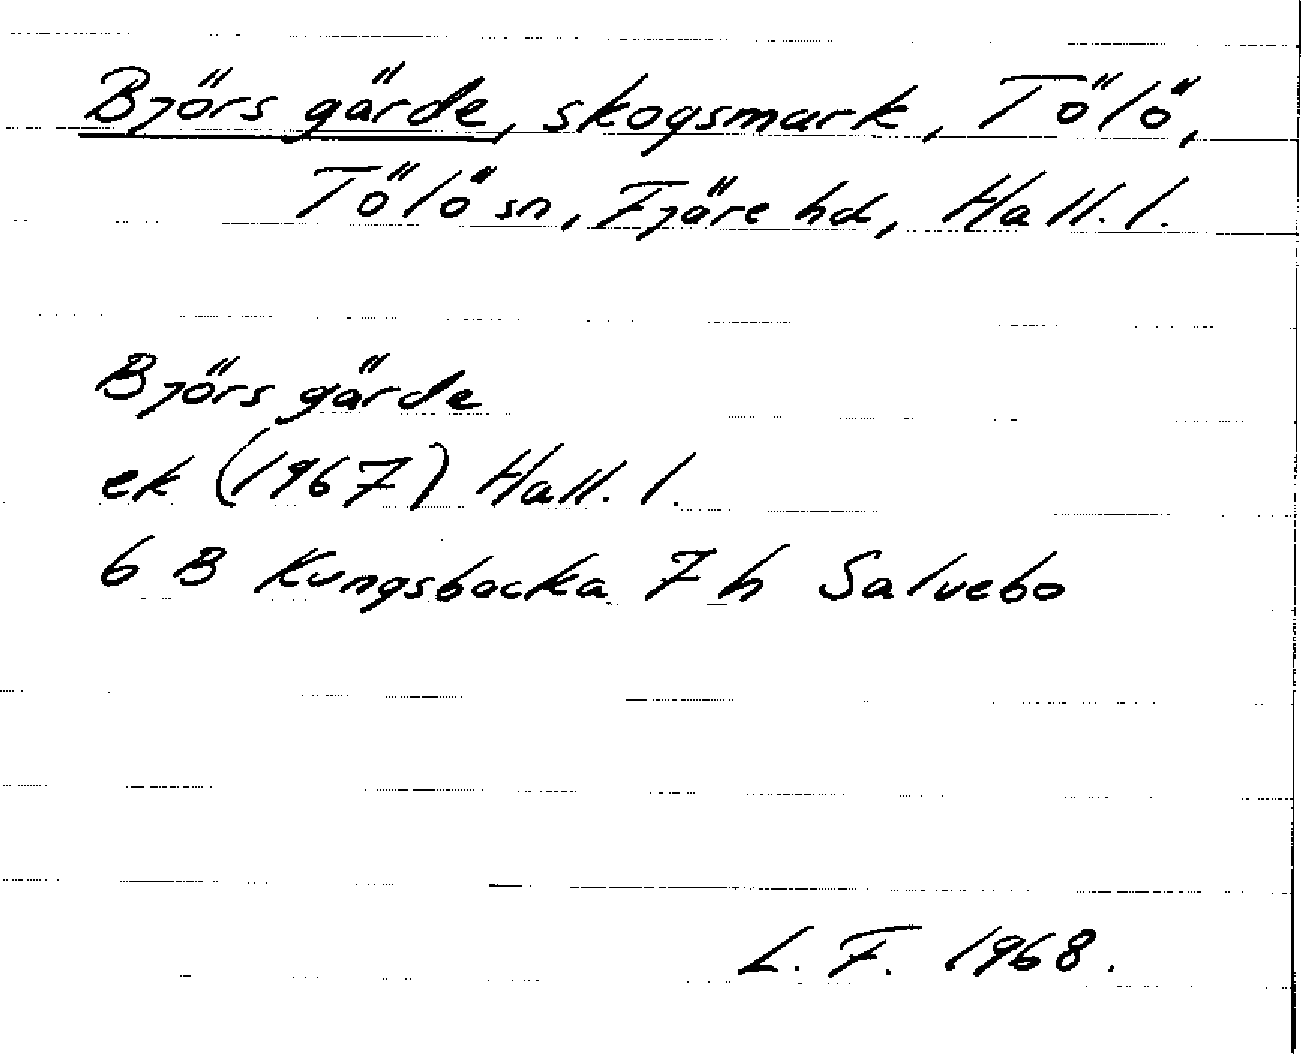 Björs gärde, skogsmark, Tölö,
Tölö sn, Fjäre hd, Hall. l.
Björs gärde
ek (1967) Hall. l.
6 B Kungsbacka 7 h Salvebo
L. F. 1968.